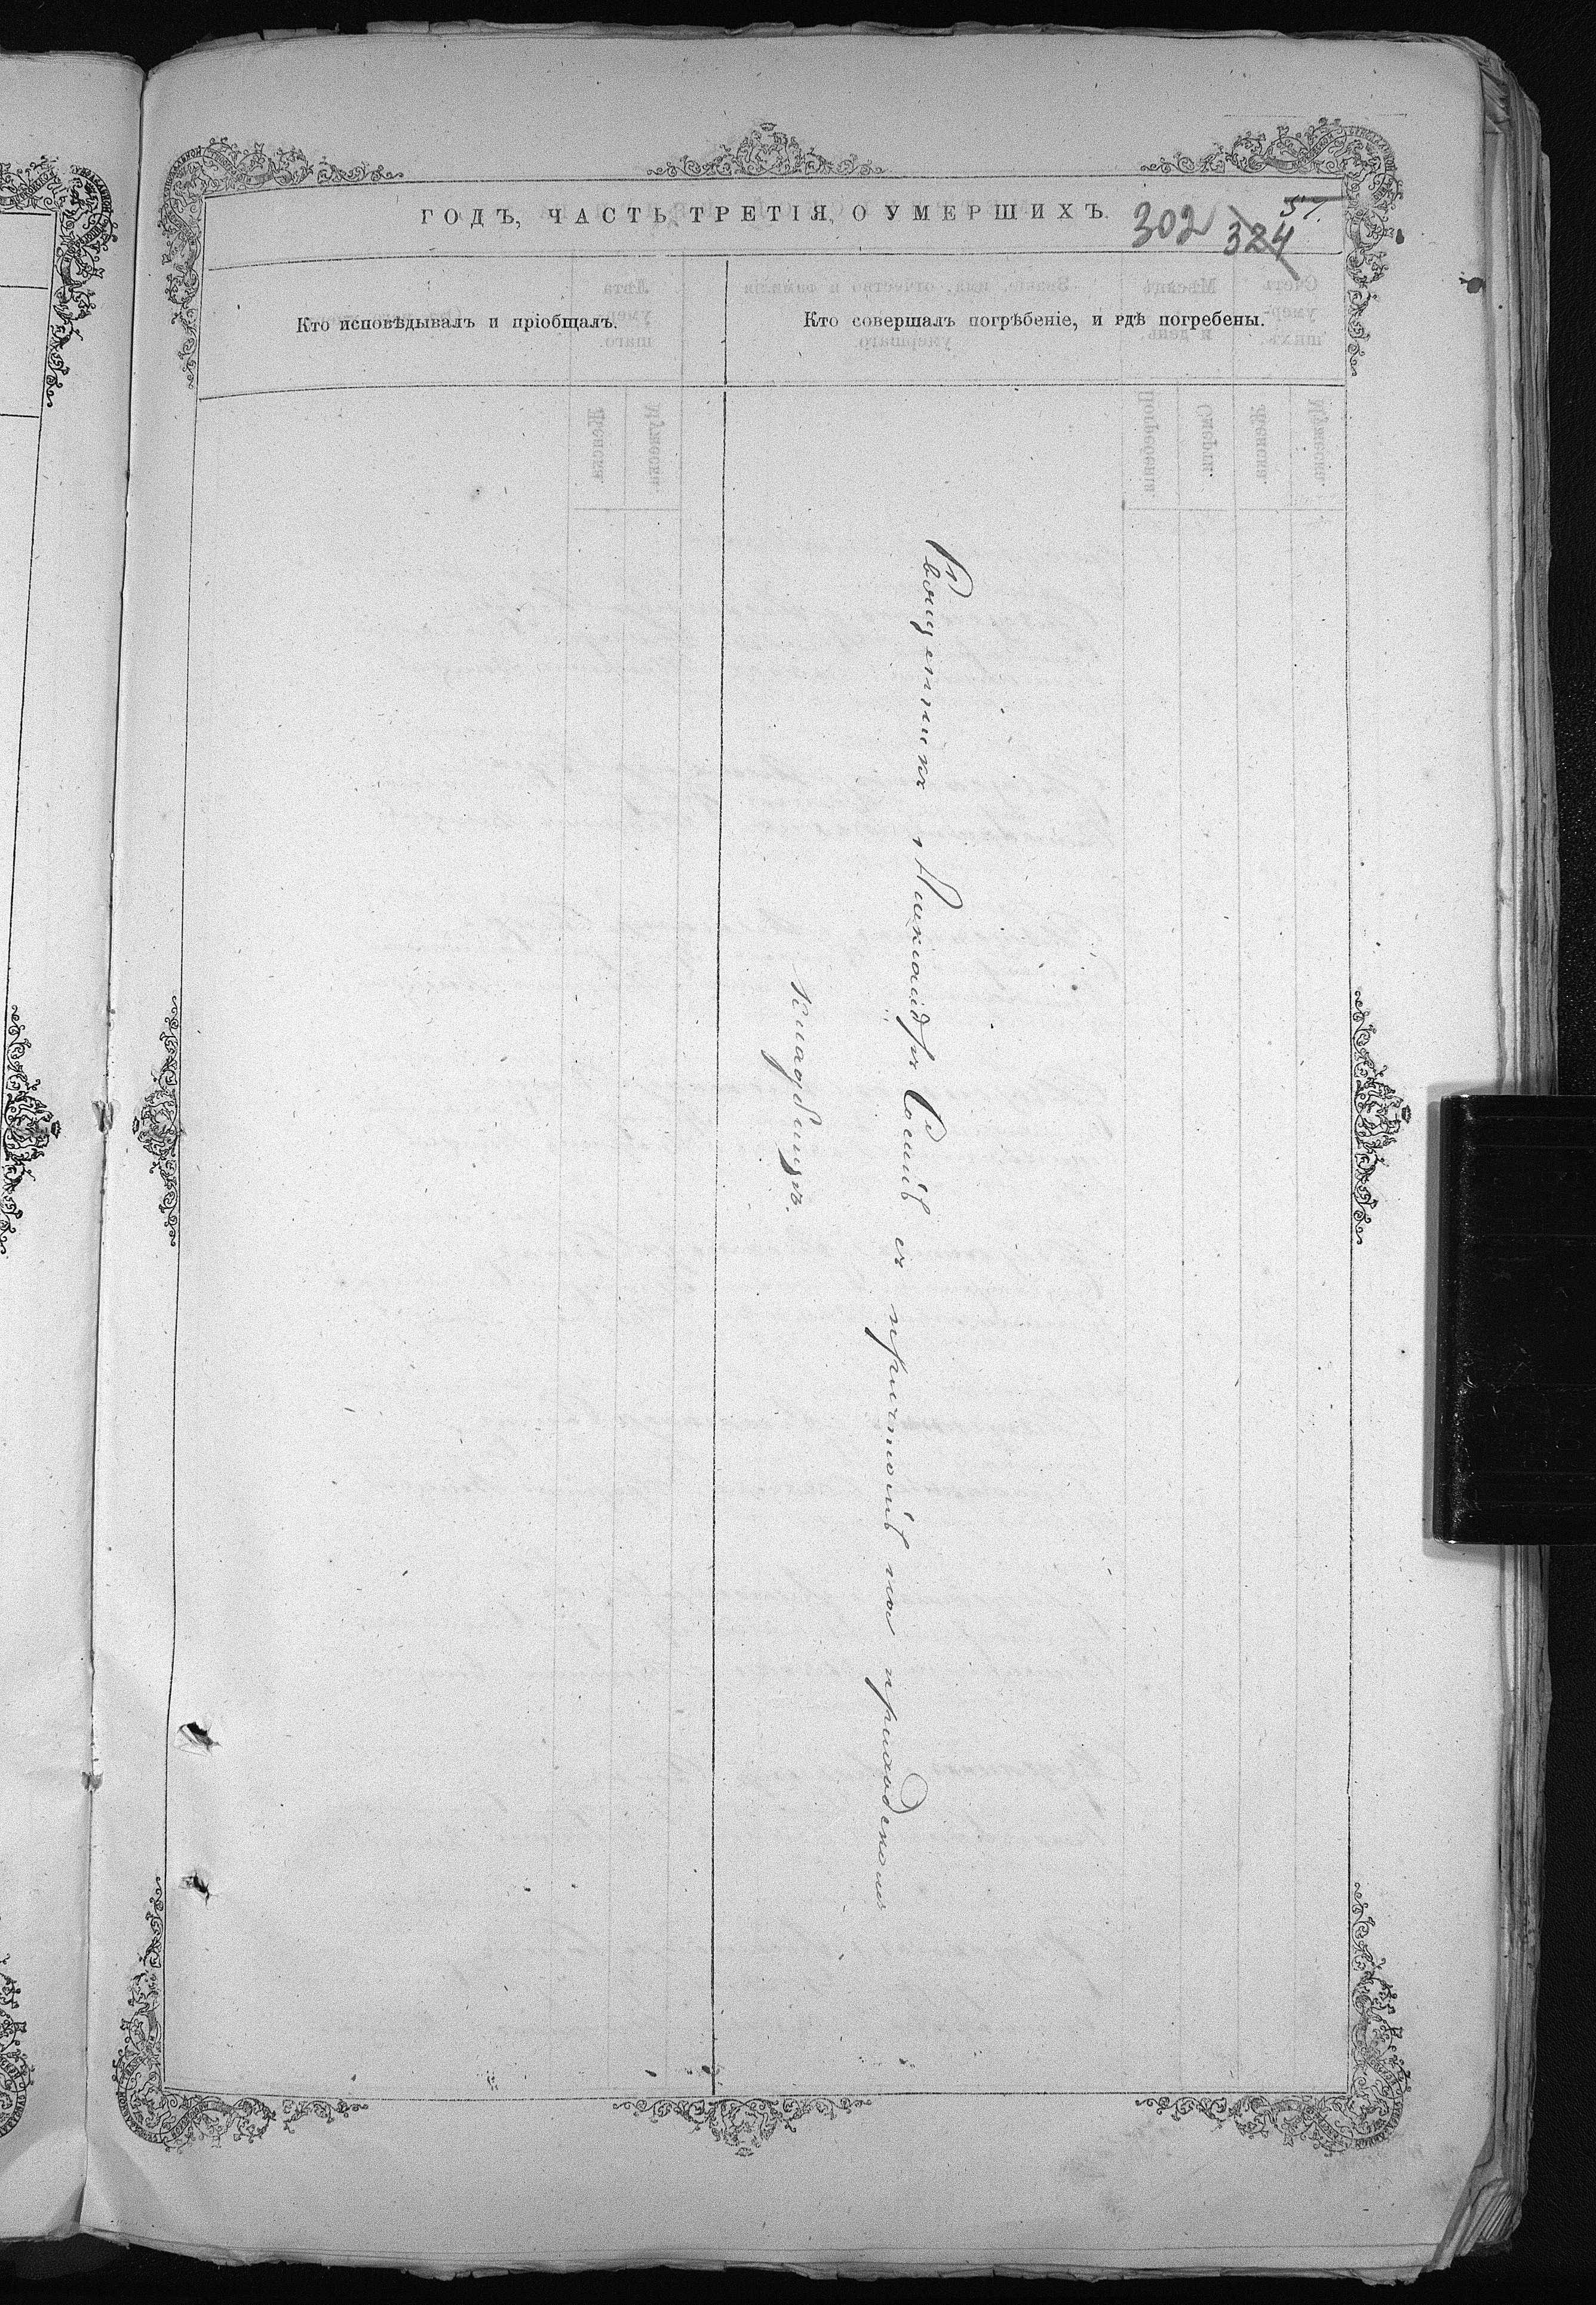 ГОДЪ, ЧАСТЬ ТРЕТІЯ, О УМЕРШИХЪ.
302 324 57.
Кто исповѣдывалъ и пріобщалъ.
Кто совершалъ погрѣбеніе, и гдѣ погребены.
Священникъ Александръ с причтомъ на приходскомъ
кладбищѣ.